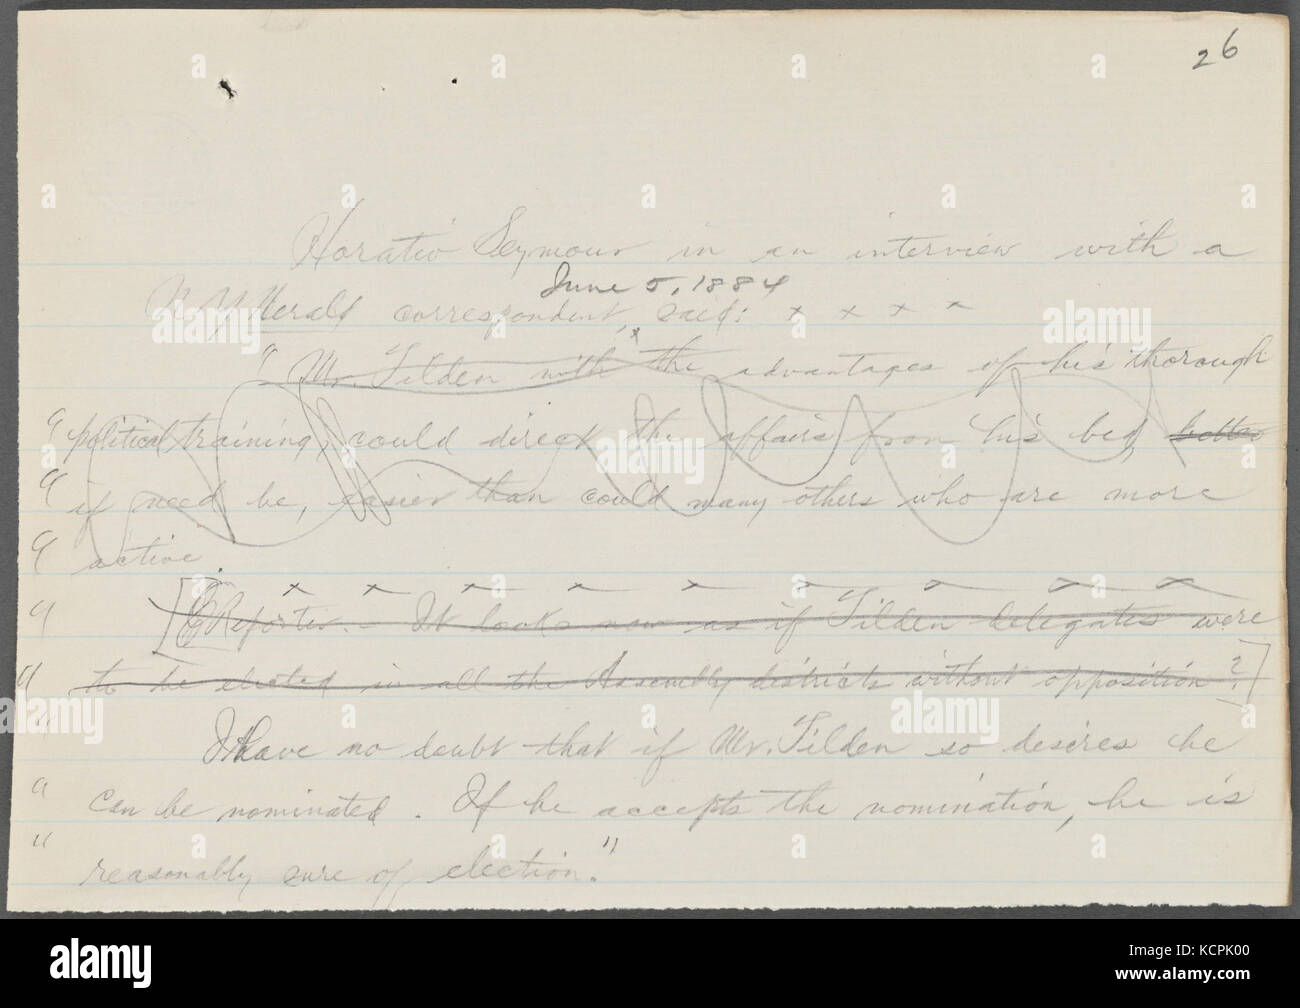 26
Horatio Seymour in an interview with a
June 5, 1884
N Y Herald correspondent, said: x x x x
x
" Mr. Tilden with the advantages of his thorough
" political training, could direct the affairs from his bed, better
" if need be, easier than could many others who are more
" active.
x x x x x x x x x
" [Reporter.- It looks now as if Tilden delegates were
" to be elected in all the Assembly districts without opposition?]
" I have no doubt that if Mr. Tilden so desires he
" can be nominated. If he accepts the nomination, he is
" reasonably sure of election."
a alamy
Image ID: KCPK00
www.alamy.com